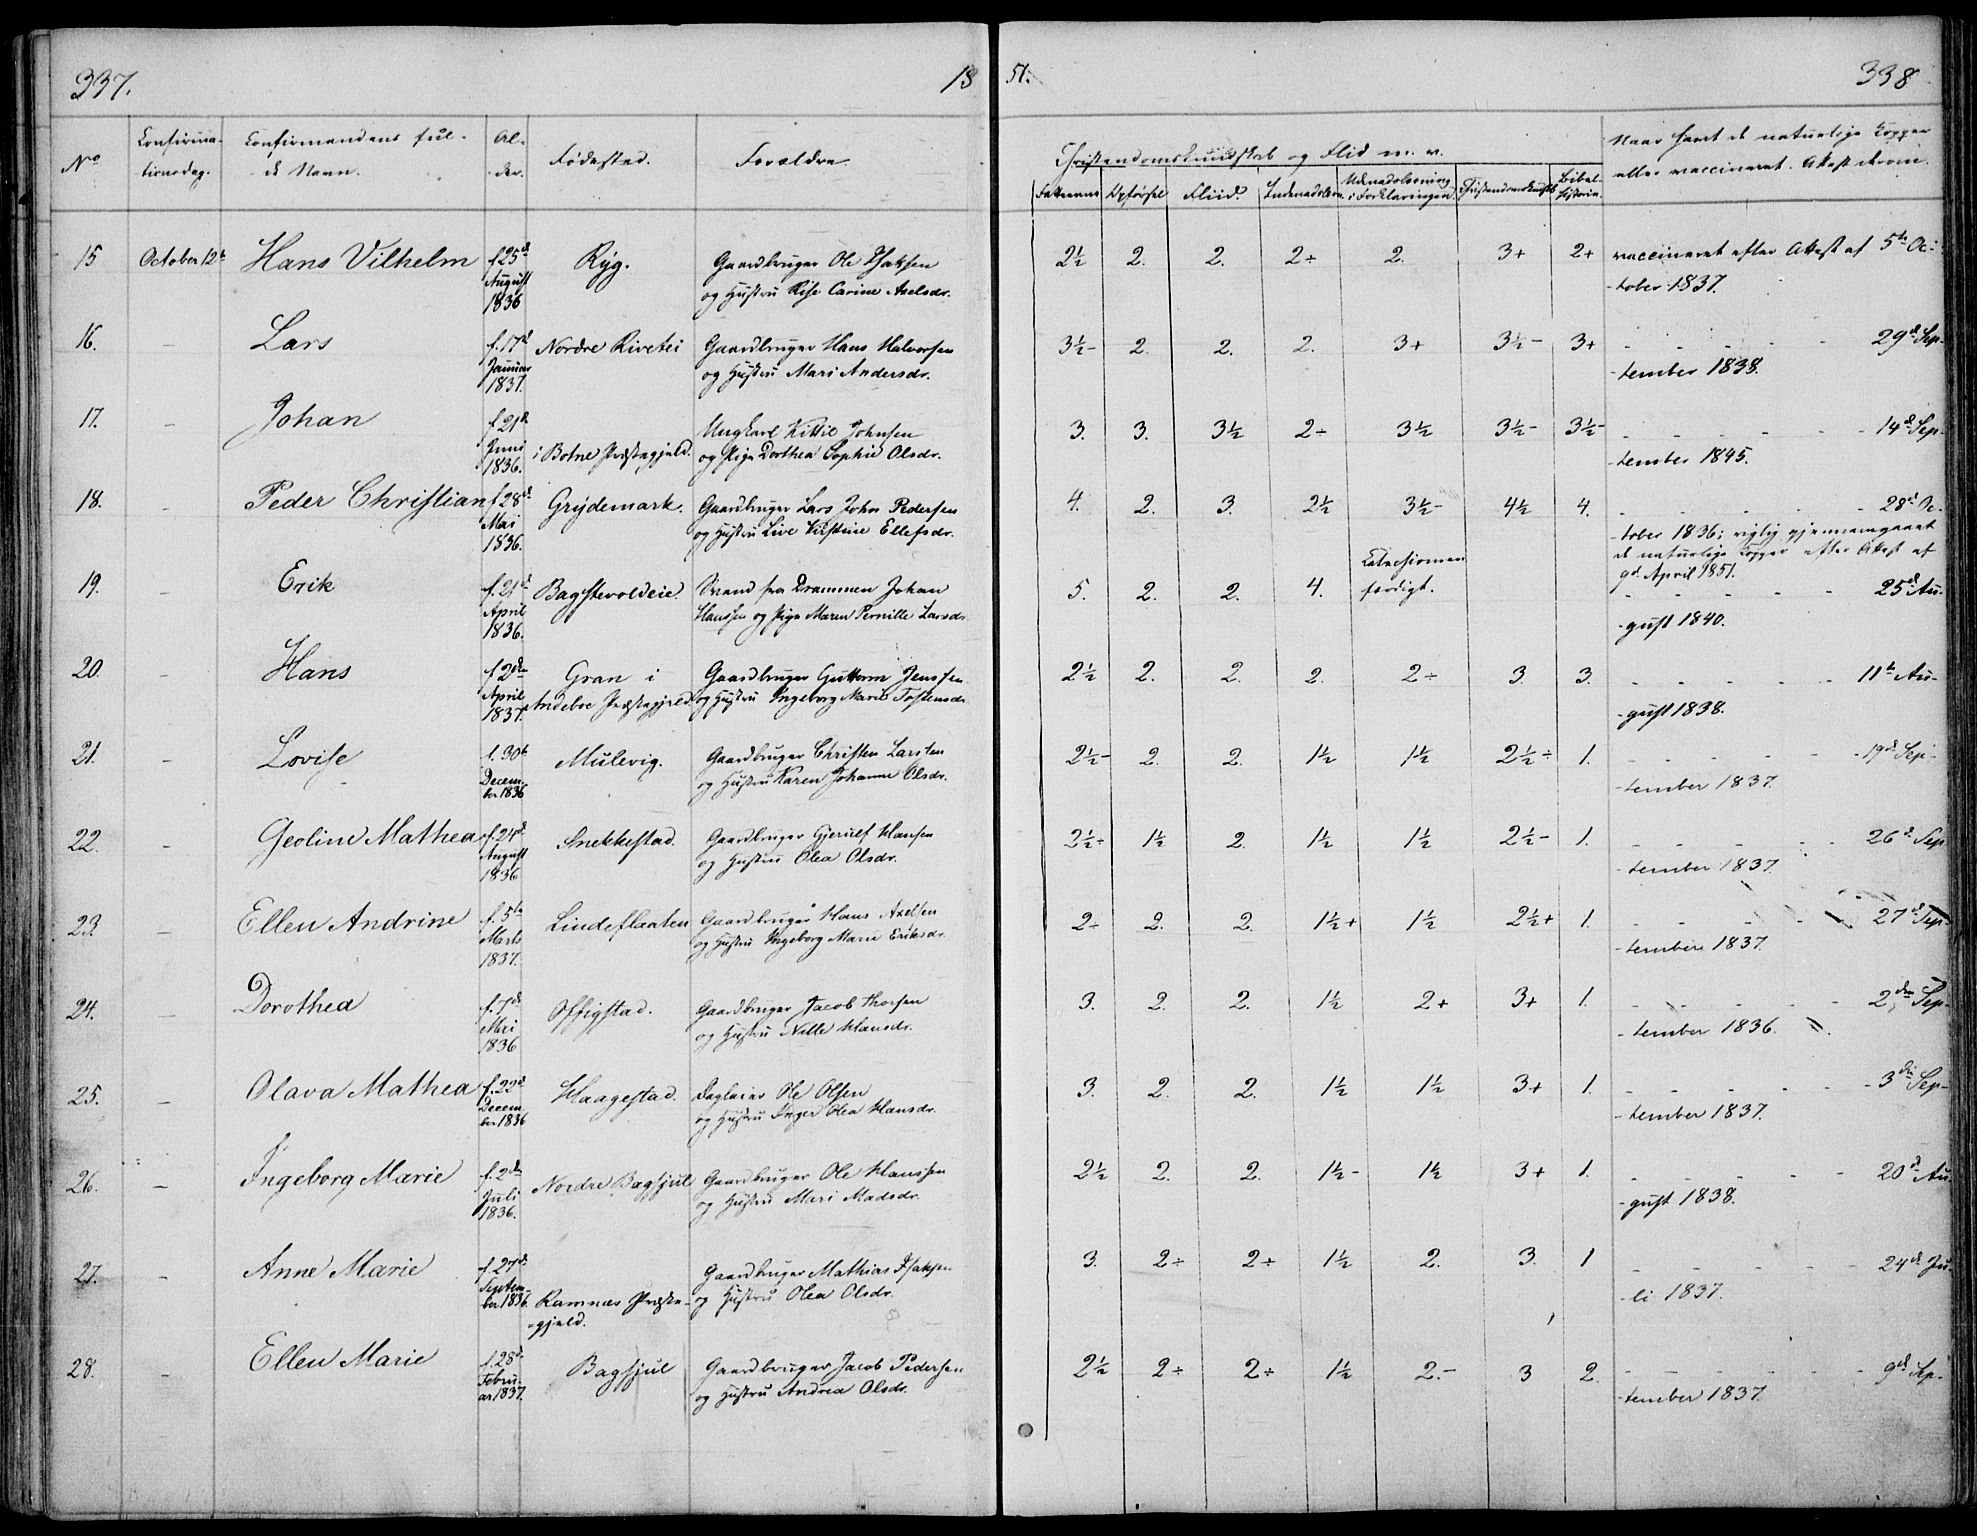 337.
18
51.
338
No
Confirma-
tionsdag.
Confirmandens ful-
de Navn.
Al-
der.
Fødested.
Forældre
Christendomskundskab og Flid m. v.
Opførsel Fliid.
Udenadslæsning
i Forklaringen
Bibel-
historie.
Naar havt de naturlige Kopper
eller vaccineret. Attest derom.
15 October 12te Hans Vilhelm f. 25de August 1836 Ryg.
Gaardbruger Ole Isaksen
og Hustru Lise Carine Axelsdr.
2½ 2. 2. 2÷ 2. 3+ 2+ vaccineret efter Attest af 5te Oc-
-tober 1837.
16. – Lars f. 17de Januar 1837. Nordre Rivetei
Gaardbruger Hans Halvorsen
og Hustru Mari Andersdr.
3½- 2. 2. 2. 3+ 3½- 3+ - - - - - 29de Sep-
-tember 1838.
17. – Johan f. 21de Juni 1836. i Botne Præstegjeld.
Ungkarl Kittil Johnsen
og Pige Dorthea Sophie Olsdr.
3. 3. 3½ 2÷ 3½ 3½- 3½- - - - - - 14de Sep-
-tember 1845.
18. – Peder Christian f. 28de Mai 1836. Grydemark.
Gaardbruger Lars John Pedersen
og Hustru Live Kirstine Ellefsdr.
4. 2. 3. 2½ 3½- 4½ 4. - - - - - 28de Oc-
-tober 1836; rigtig gjennemgaaet
de naturlige Kopper efter Attest af
9de April 1851.
19. – Erik f. 21de April 1836. Bagstevoldeie.
Svend fra Drammen Johan
Hanssen og Pige Maren Pernille Larsdr.
5. 2. 2. 4. Catechismen
færdigt. - - - - - 25de Au-
-gust 1840.
20. – Hans f. 2den April 1837. Gran i
Andeboe Præstegjeld.
Gaardbruger Guttorm Jenssen
og Hustru Ingeborg Marie Tostensdr.
2½ 2. 2. 2. 2÷ 3. 3. - - - - - 11te Au-
-gust 1838.
21. – Lovise f. 30te Decem-
ber 1836 Mulevig.
Gaardbruger Christen Larsten
og Hustru Karen Johanne Olsdr.
2½- 2. 2. 1½ 1½ 2½÷ 1. - - - - - 19de Sep-
-tember 1837.
22. – Geoline Mathea f. 24de August 1836 Snekkestad.
Gaardbruger Gjerulf Hansen
og Hustru Olea Olsdr.
2½÷ 1½ 2. 1½ 1½ 2½- 1. - - - - - 26de Sep
-tember 1837.
23. – Ellen Andrine f. 5te Marts 1837. Lindeflaaten
Gaardbruger Hans Axelsen
og Hustru Ingeborg Marie Eriksdr.
2÷ 2. 2. 1½+ 1½ 2½+ 1. - - - - 27de Sep-
-tember 1837.
24. – Dorothea f. 7de Mai 1836 Offigstad.
Gaardbruger Jacob Thorsen
og Hustru Nille Hansdr.
3. 2. 2. 1½ 2+ 3+ 1. - - - - - 2den Sep-
-tember 1836.
25. – Olava Mathea f. 22de Decem-
ber 1836 Haagestad.
Daglejer Ole Olsen
og Hustru Inger Olea Hansdr.
3. 2. 2. 1½ 1½ 3+ 1. - - - - - 3die Sep-
-tember 1837.
26. – Ingeborg Marie f. 2den Juli 1836. Nordre Bagsjul
Gaardbruger Ole Hanssen
og Hustru Mari Madsdr.
2½ 2. 2. 1½- 1½ 3+ 1. - - - - - 20de Au
-gust 1838.
27. – Anne Marie f. 27de Septem-
ber 1836. Ramnæs Præste-
-gjeld.
Gaardbruger Mathias Isaksen
og Hustru Olea Olsdr.
3. 2÷ 2÷ 1½ 2. 3. 1 - - - - - 24de Ju-
-li 1837.
28. – Ellen Marie f. 28de Febru-
ar 1837. Bagsjul
Gaardbruger Jacob Pedersen
og Hustru Andrea Olsdr.
2½ 2÷ 2÷ 1½ 2.- 3 2. - - - - - 9de Sep-
-tember 1837.